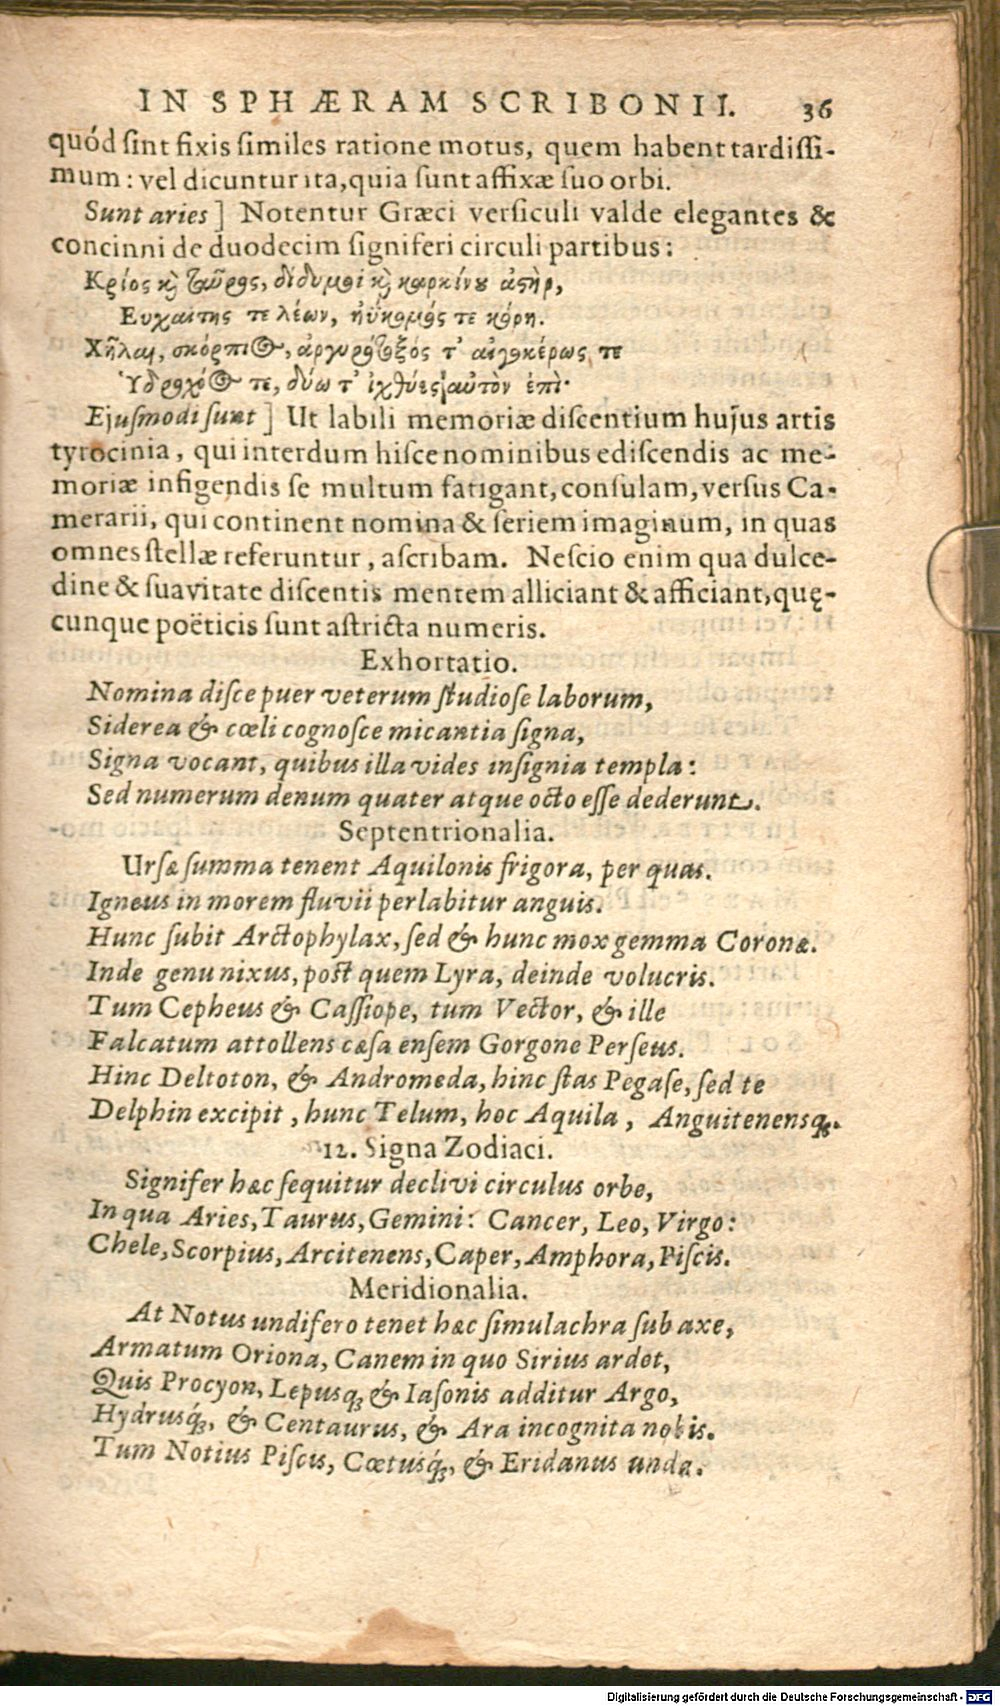 IN SPHÆRAM SCRIBONII. 36
quód sint fixis similes ratione motus, quem habent tardissi-
mum: vel dicuntur ita, quia sunt affixæ suo orbi.
Sunt aries] Notentur Græci versiculi valde elegantes &
concinni de duodecim signiferi circuli partibus:
Κριός καὶ ταῦρος, δίδυμοι καὶ καρκίνου ἀστὴρ,
Ευχαίτης τε λέων, ἠΰκομός τε κόρη.
Χῆλαι, σκόρπιος, ἀργυρότοξός τ' αἰγόκέρως τε
Ὑδροχόος τε, δύω τ' ἰχθύες αὐτὸν ἐπὶ·
Ejusmodi sunt] Ut labili memoriæ discentium hujus artis
tyrocinia, qui interdum hisce nominibus ediscendis ac me-
moriæ infigendis se multum fatigant, consulam, versus Ca-
merarii, qui continent nomina & seriem imaginum, in quas
omnes stellæ referuntur, ascribam. Nescio enim qua dulce-
dine & suavitate discentis mentem alliciant & afficiant, quę-
cunque poëticis sunt astricta numeris.
Exhortatio.
Nomina disce puer veterum studiose laborum,
Siderea & cœli cognosce micantia signa,
Signa vocant, quibus illa vides insignia templa:
Sed numerum denum quater atque octo esse dederunt.
Septentrionalia.
Ursæ summa tenent Aquilonis frigora, per quas.
Igneus in morem fluvii perlabitur anguis.
Hunc subit Arctophylax, sed & hunc mox gemma Coronæ.
Inde genu nixus, post quem Lyra, deinde volucris.
Tum Cepheus & Cassiope, tum Vector, & ille
Falcatum attollens cæsa ensem Gorgone Perseus.
Hinc Deltoton, & Andromeda, hinc stas Pegase, sed te
Delphin excipit, hunc Telum, hoc Aquila, Anguitenensq́;.
12. Signa Zodiaci.
Signifer hæc sequitur declivi circulus orbe,
In qua Aries, Taurus, Gemini: Cancer, Leo, Virgo:
Chele, Scorpius, Arcitenens, Caper, Amphora, Piscis.
Meridionalia.
At Notus undifero tenet hæc simulachra sub axe,
Armatum Oriona, Canem in quo Sirius ardet,
Quis Procyon, Lepusq; & Iasonis additur Argo,
Hydrusq́;, & Centaurus, & Ara incognita nobis.
Tum Notius Piscis, Cœtusq́;, & Eridanus unda.
Digitalisierung gefördert durch die Deutsche Forschungsgemeinschaft - DFG